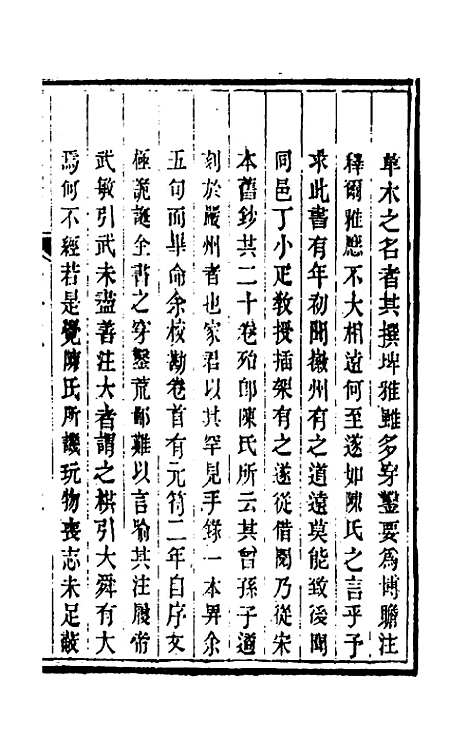 草木之名者其撰埤雅雖多穿鑿要爲博贍注
釋爾雅應不大相遠何至遂如陳氏之言乎予
求此書有年初聞徽州有之道遠莫能致後聞
同邑丁小疋敎授插架有之遂從借閱乃從宋
本舊鈔共二十卷殆卽陳氏所云其曾孫子遹
刻於嚴州者也家君以其罕見手錄一本畀余
五旬而畢命余校勘卷首有元符二年自序文
極詭誕全書之穿鑿荒鄙難以言喻其注履帝
武敏引武未盡善注大者謂之栱引大舜有大
焉何不經若是覺陳氏所譏玩物喪志未足蔽